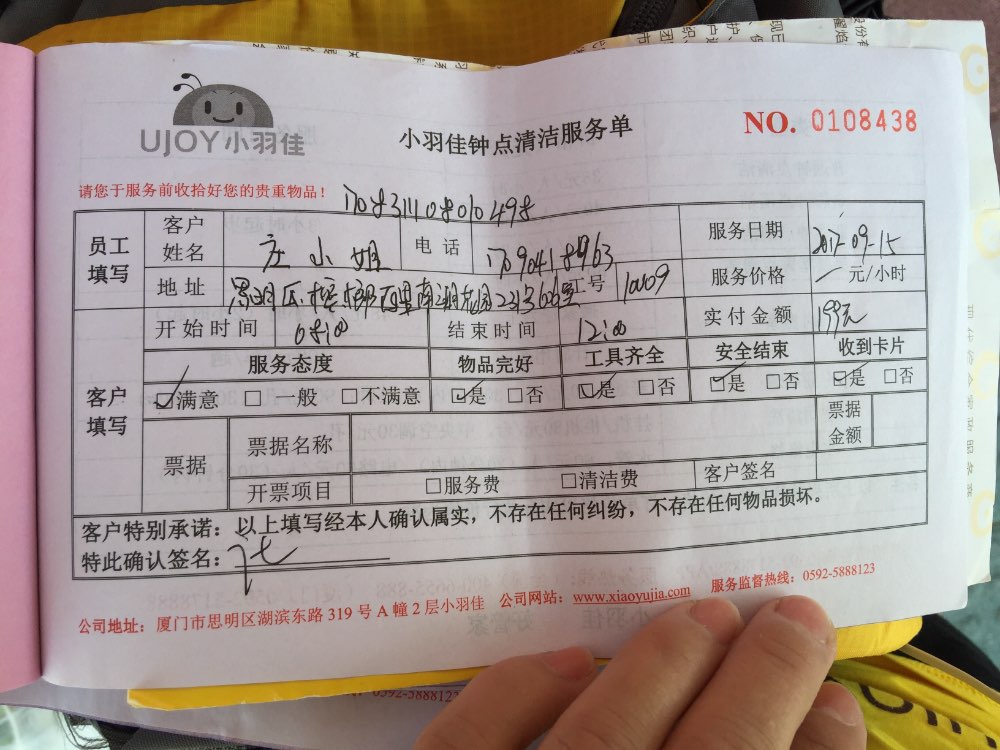 UJOY小羽佳
小羽佳钟点清洁服务单
NO. 0108438
请您于服务前收拾好您的贵重物品！
员工填写
客户姓名 庄小姐 电话 服务日期 2017-09-15
地址 工号 10009 服务价格 元/小时
开始时间 08:00 结束时间 12:00 实付金额 199元
客户填写
服务态度 物品完好 工具齐全 安全结束 收到卡片
☑满意 □一般 □不满意 ☑是 □否 ☑是 □否 ☑是 □否 ☑是 □否
票据 票据名称 票据金额
开票项目 □服务费 □清洁费 客户签名
客户特别承诺：以上填写经本人确认属实，不存在任何纠纷，不存在任何物品损坏。
特此确认签名：
公司地址：厦门市思明区湖滨东路 319 号 A 幢 2 层小羽佳 公司网站：www.xiaoyujia.com 服务监督热线：0592-5888123
0592-5888123